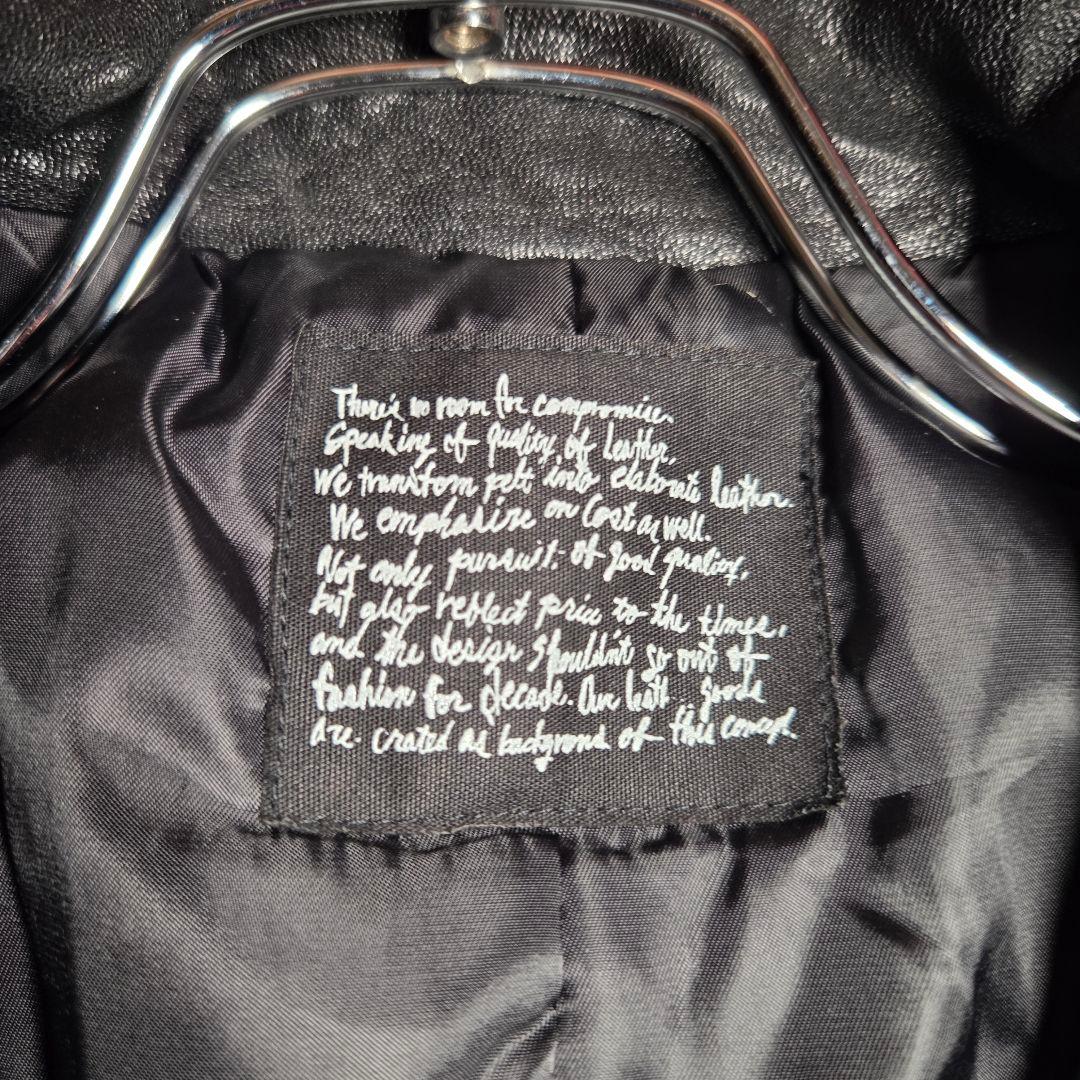 There's no room for compromise.
Speaking of quality of Leather,
We transform pelt into elaborate leather.
We emphasize on Cost as well.
Not only pursuit of good quality,
but also reflect price to the times,
and the design shouldn't go out of
fashion for decade. Our goods
are crated as backgrond of this concept